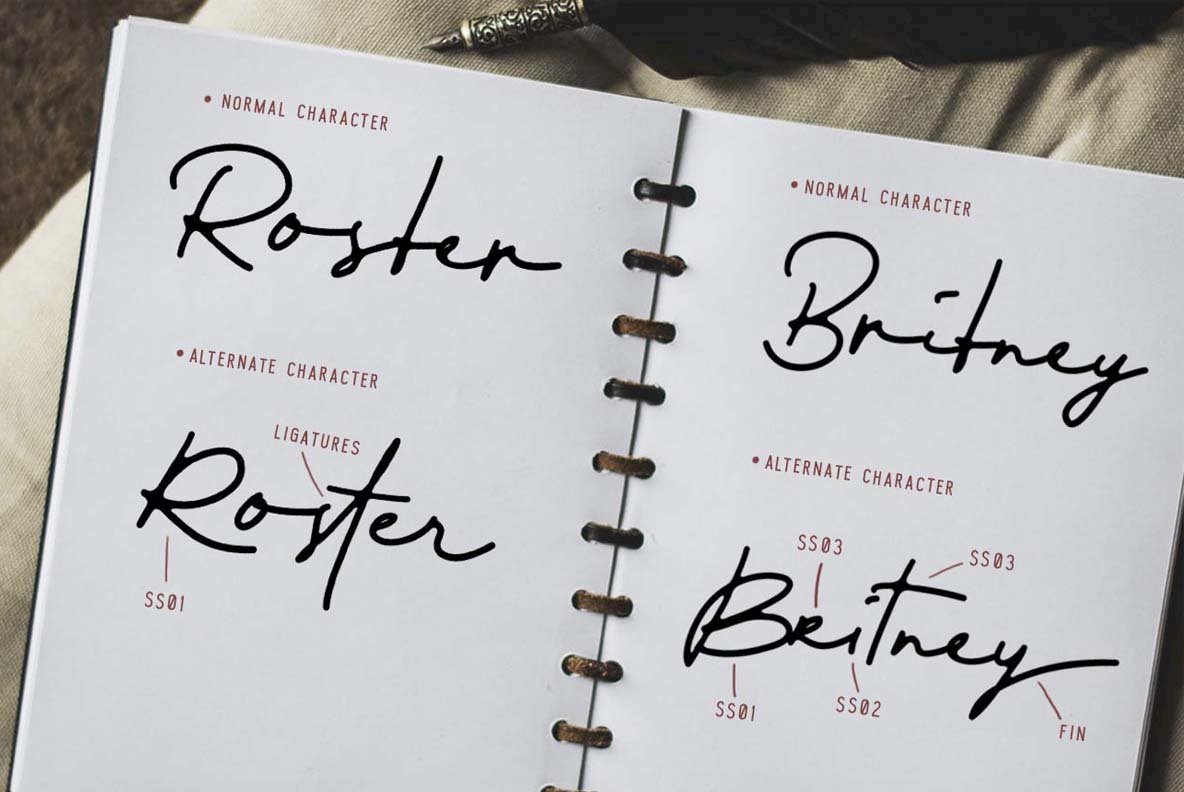 • NORMAL CHARACTER
Roster
• ALTERNATE CHARACTER
LIGATURES
Roster
SS01
• NORMAL CHARACTER
Britney
• ALTERNATE CHARACTER
SS03
SS03
Britney
SS01
SS02
FIN